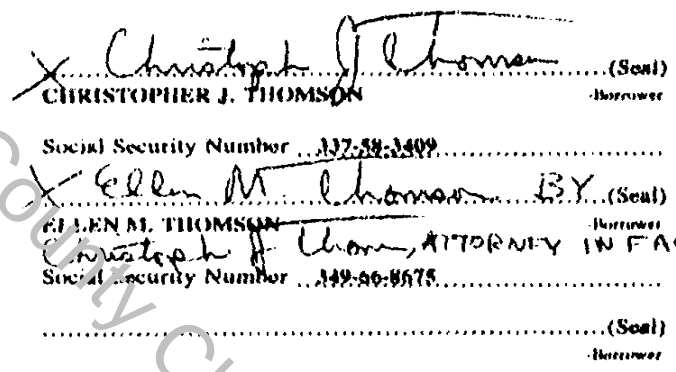 X Christoph J Thomson (Seal)
CHRISTOPHER J. THOMSON -Borrower
Social Security Number 337-58-3409
X Ellen M. Thomson BY (Seal)
ELLEN M. THOMSON -Borrower
Christoph J Thom, ATTORNEY IN FAC
Social Security Number 349-66-8675
(Seal)
-Borrower
County